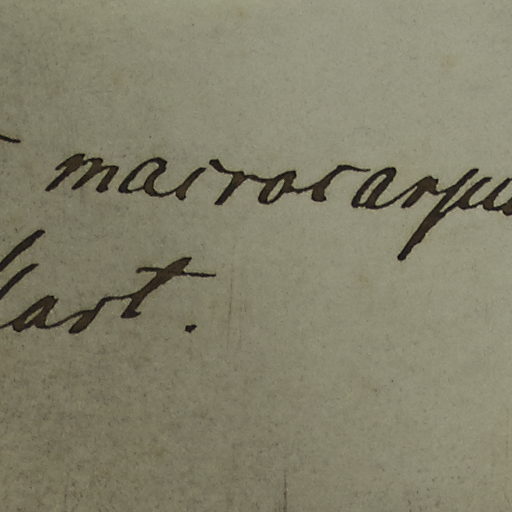 macrocarpu
art.